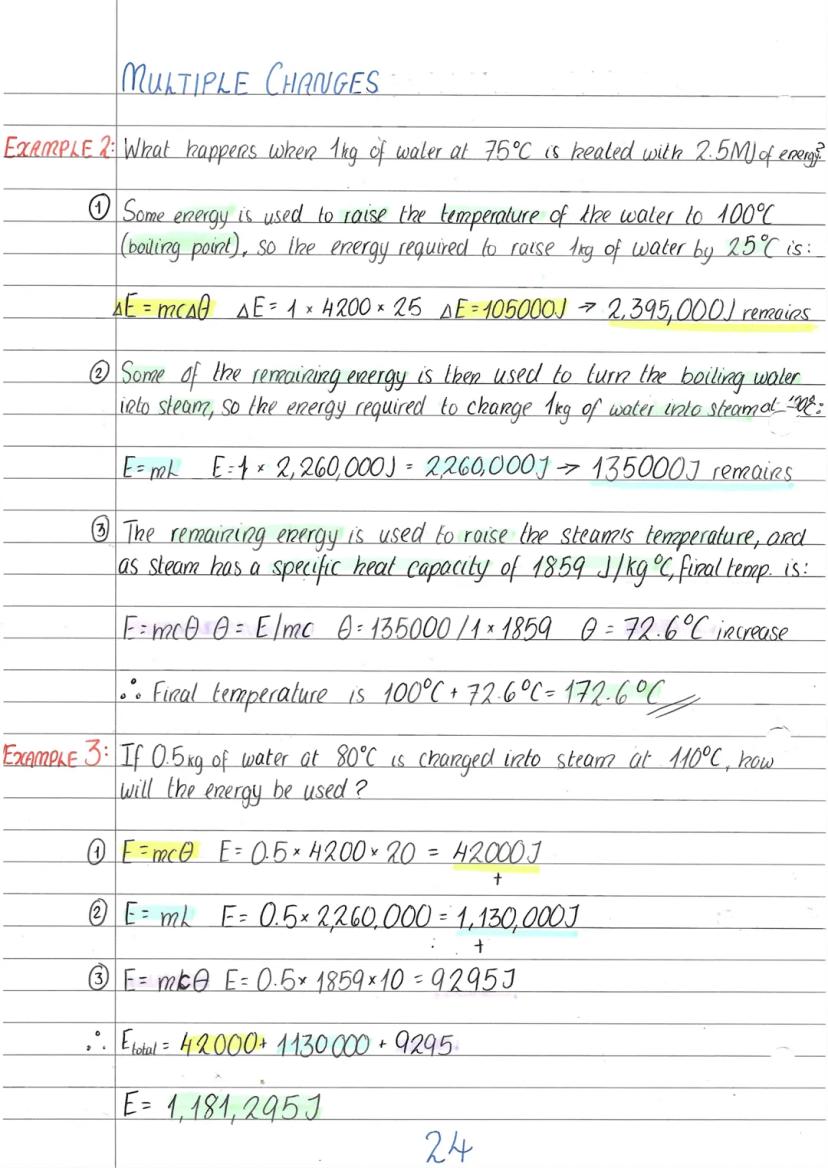 MULTIPLE CHANGES
EXAMPLE 2: What happens when 1kg of water at 75°C is heated with 2.5MJ of energy?
① Some energy is used to raise the temperature of the water to 100°C
(boiling point), so the energy required to raise 1kg of water by 25°C is:
ΔE = mcΔθ ΔE = 1 × 4200 × 25 ΔE = 105000J → 2,395,000J remains
② Some of the remaining energy is then used to turn the boiling water
into steam, so the energy required to change 1kg of water into steam at 100°C:
E = mL E = 1 × 2,260,000J = 2260,000J → 135000J remains
③ The remaining energy is used to raise the steam's temperature, and
as steam has a specific heat capacity of 1859 J/kg°C, final temp. is:
E = mcθ θ = E/mc θ = 135000 / 1 × 1859 θ = 72.6°C increase
∴ Final temperature is 100°C + 72.6°C = 172.6°C
EXAMPLE 3: If 0.5kg of water at 80°C is changed into steam at 110°C, how
will the energy be used?
① E = mcθ E = 0.5 × 4200 × 20 = 42000J
+
② E = mL E = 0.5 × 2,260,000 = 1,130,000J
+
③ E = mcθ E = 0.5 × 1859 × 10 = 9295J
∴ Etotal = 42000 + 1130000 + 9295
E = 1,181,295J
24